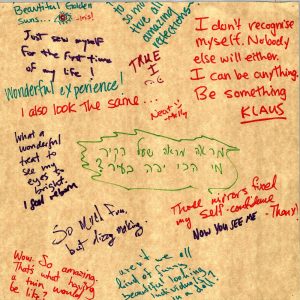 Beautiful Golden
Suns...
-Iris!
to so my
true all
amazing
reflections.
I don't recognise
myself. Nobody
else will either.
I can be anything.
Be something
KLAUS
Just saw myself
for the first time
of my life!
TAKE
I
Wonderful experience!
I also look the same...
Neat
What a
wonderful
treat to
see my
eyes so
bright.
I
מראה מראה שעל הקיר
מי הכי יפה בעיר?
Those mirrors fixed
my self-confidence
- Thanx!
NOW YOU SEE ME
So Much Fun,
but dizzy making.
Wow. So amazing.
That's what having
a twin would
be like?
aren't we all
kind of funny
beautiful looking
individuals?